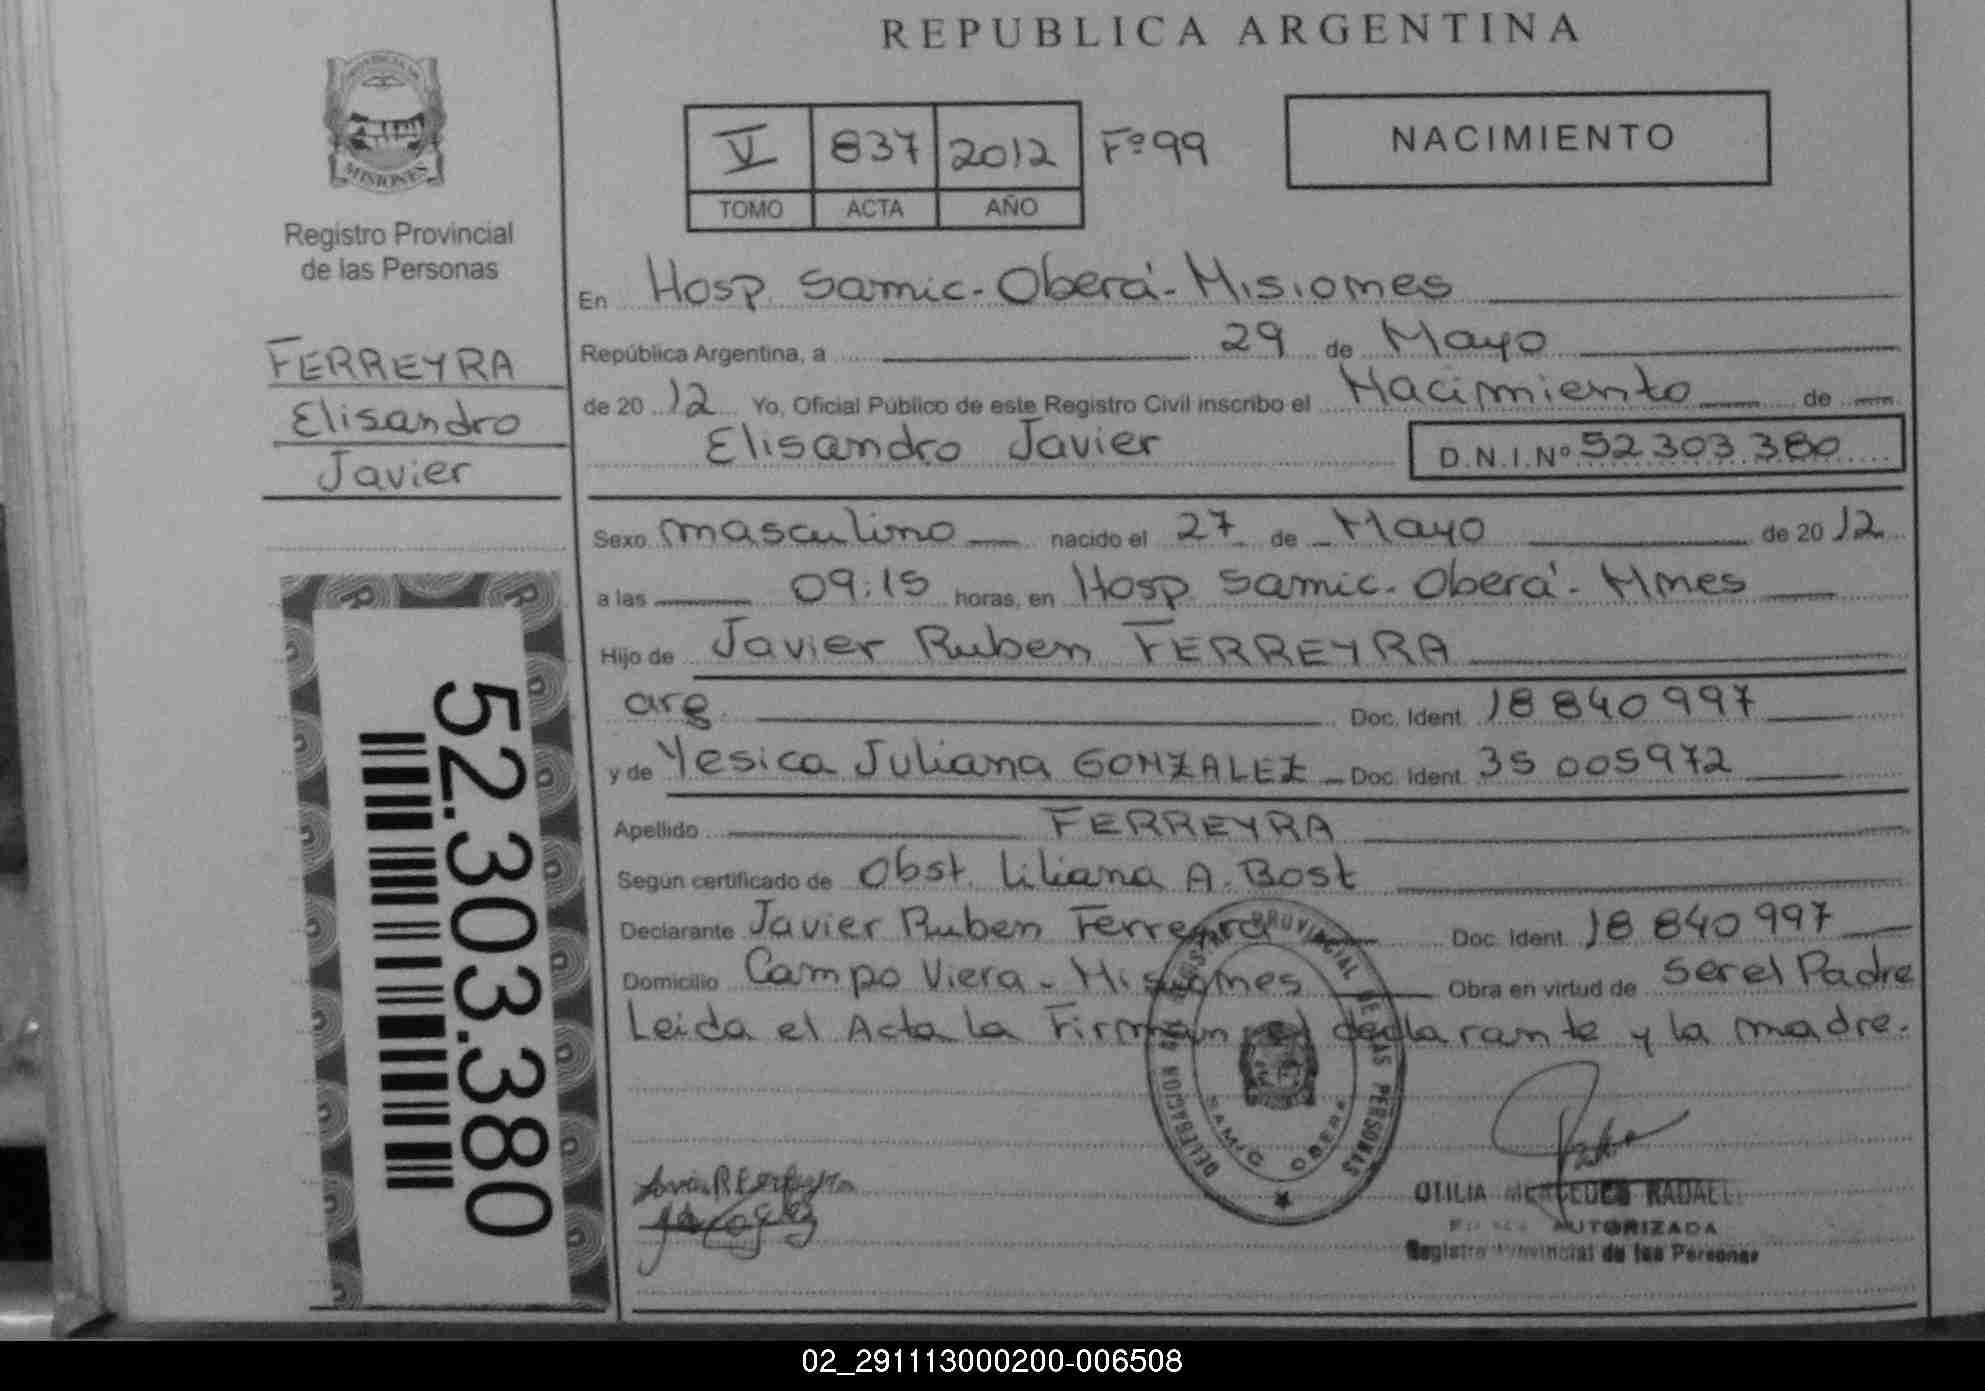 REPUBLICA ARGENTINA
PROVINCIA DE
MISIONES
Registro Provincial
de las Personas
FERREYRA
Elisandro
Javier
52.303.380
V 837 2012 Fº 99
TOMO ACTA AÑO
NACIMIENTO
En Hosp Samic. Oberá. Misiones
República Argentina, a 29 de Mayo
de 20 12 Yo, Oficial Público de este Registro Civil inscribo el Nacimiento de
Elisandro Javier D.N.I.Nº 52 303 380
Sexo masculino nacido el 27 de Mayo de 20 12
a las 09:15 horas, en Hosp Samic. Oberá. Mnes
Hijo de Javier Ruben FERREYRA
arg Doc. Ident. 18 840 997
y de Yesica Juliana GONZALEZ Doc. Ident. 35 005972
Apellido FERREYRA
Según certificado de Obst. Liliana A. Bost
Declarante Javier Ruben Ferreyra Doc. Ident. 18 840 997
Domicilio Campo Viera - Misiones Obra en virtud de ser el Padre
Leida el Acta la Firman el declarante y la madre.
DELEGACION DEL REGISTRO PROVINCIAL DE LAS PERSONAS
SAMIC OBERA
OTILIA MERCEDES
AUTORIZADA
Registro Provincial de las Personas
02_291113000200-006508